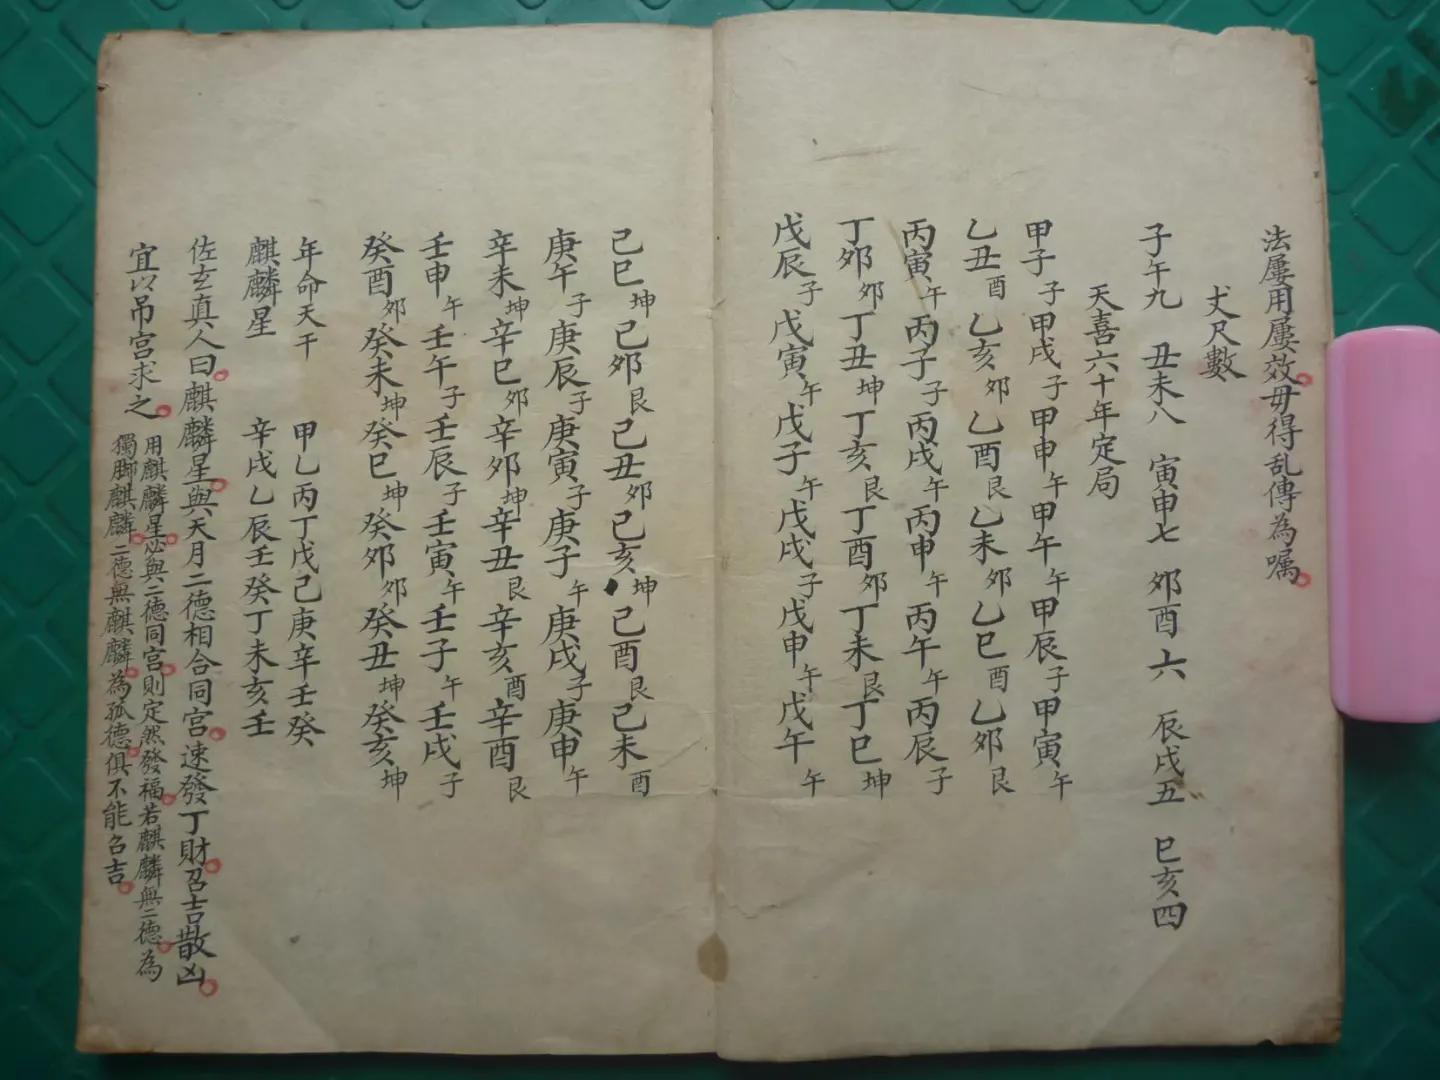 法屢用屢效毋得乱傳為嘱
丈尺數
子午九 丑未八 寅申七 夘酉六 辰戌五 巳亥四
天喜六十年定局
甲子子甲戌子甲申午甲午午甲辰子甲寅午
乙丑酉乙亥夘乙酉艮乙未夘乙巳酉乙夘艮
丙寅午丙子子丙戌午丙申午丙午午丙辰子
丁夘夘丁丑坤丁亥艮丁酉夘丁未艮丁巳坤
戊辰子戊寅午戊子午戊戌子戊申午戊午午
己巳坤己夘艮己丑夘己亥坤己酉艮己未酉
庚午子庚辰子庚寅子庚子午庚戌子庚申午
辛未坤辛巳夘辛夘坤辛丑艮辛亥酉辛酉艮
壬申午壬午子壬辰子壬寅午壬子午壬戌子
癸酉夘癸未坤癸巳坤癸夘夘癸丑坤癸亥坤
年命天干 甲乙丙丁戊己庚辛壬癸
麒麟星 辛戌乙辰壬癸丁未亥壬
佐玄真人曰麒麟星與天月二德相合同宫速發丁財召吉散凶
宜以吊宫求之
用麒麟星必與二德同宫則定然發福若麒麟無二德為
獨脚麒麟二德無麒麟為孤德俱不能召吉